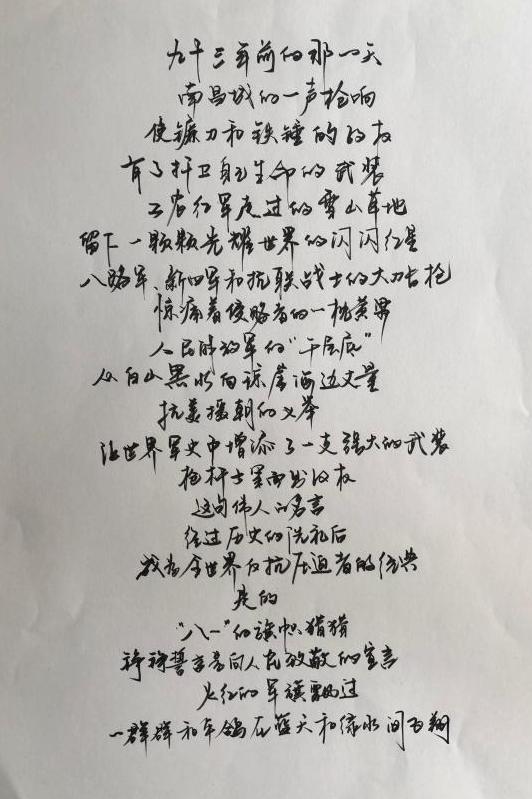 九十三年前的那一天
南昌城的一声枪响
使镰刀和铁锤的政权
有了扞卫自己生命的武装
工农红军走过的雪山草地
留下一颗颗光耀世界的闪闪红星
八路军、新四军和抗联战士的大刀长枪
惊痛着侵略者的一枕黄粱
人民解放军的“千层底”
从白山黑水向琼崖海边丈量
抗美援朝的义举
让世界军史中增添了一支强大的武装
枪杆子里面出政权
这句伟人的名言
经过历史的洗礼后
成为全世界反抗压迫者的经典
是的
“八一”的旗帜猎猎
铮铮誓言是向人民致敬的宣言
火红的军旗飘过
一群群和平鸽在蓝天和绿水间飞翔